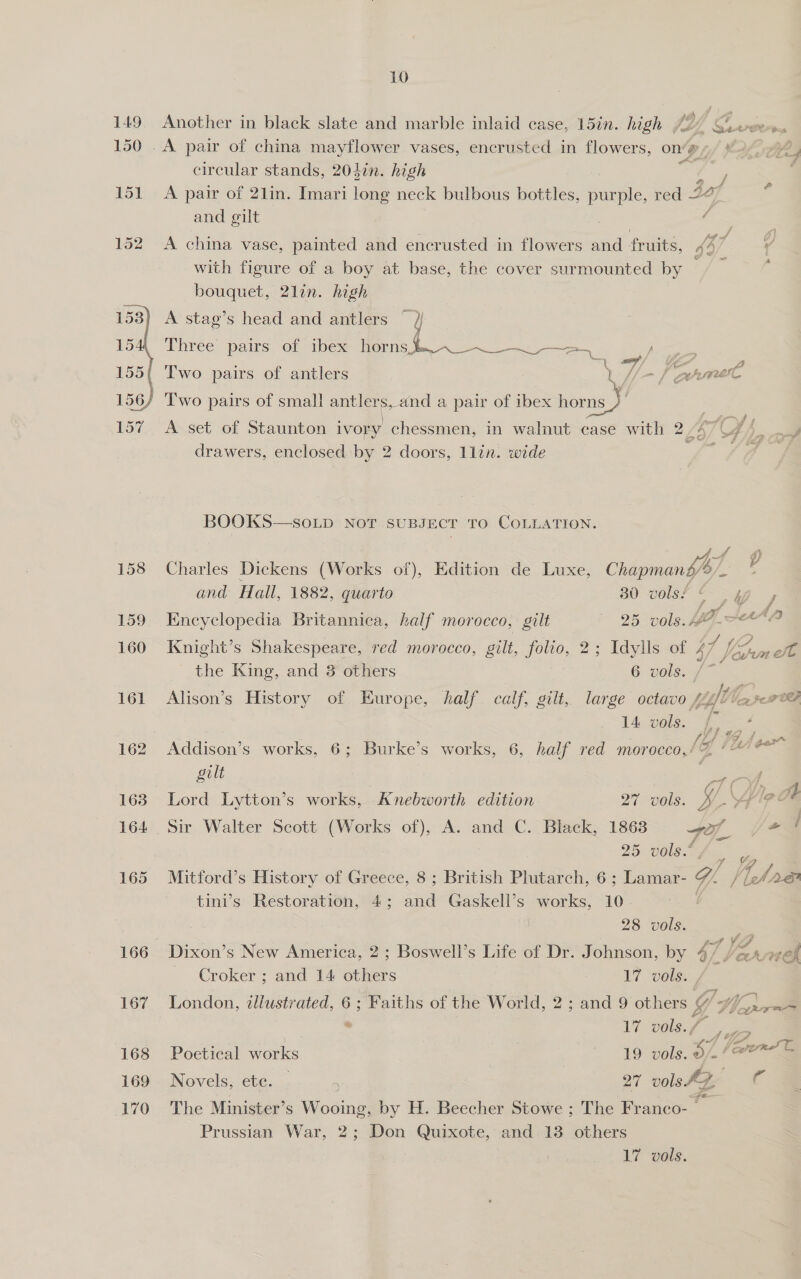 10
149 Another in black slate and marble inlaid case, 15in. high
150 A pair of china mayflower vases, encrusted in flowers, on
circular stands, 20½in. high
151 A pair of 21in. Imari long neck bulbous bottles, purple, red
and gilt
152 A china vase, painted and encrusted in flowers and fruits,
with figure of a boy at base, the cover surmounted by
bouquet, 21in. high
153 A stag's head and antlers
154 Three pairs of ibex horns
155 Two pairs of antlers
156 Two pairs of small antlers, and a pair of ibex horns
157 A set of Staunton ivory chessmen, in walnut case with 2
drawers, enclosed by 2 doors, 11in. wide
BOOKS—SOLD NOT SUBJECT TO COLLATION.
158 Charles Dickens (Works of), Edition de Luxe, Chapman
and Hall, 1882, quarto 30 vols.
159 Encyclopedia Britannica, half morocco, gilt 25 vols.
160 Knight's Shakespeare, red morocco, gilt, folio, 2; Idylls of
the King, and 3 others 6 vols.
161 Alison's History of Europe, half calf, gilt, large octavo
14 vols.
162 Addison's works, 6; Burke's works, 6, half red morocco,
gilt
163 Lord Lytton's works, Knebworth edition 27 vols.
164 Sir Walter Scott (Works of), A. and C. Black, 1863
25 vols.
165 Mitford's History of Greece, 8; British Plutarch, 6; Lamar-
tini's Restoration, 4; and Gaskell's works, 10
28 vols.
166 Dixon's New America, 2; Boswell's Life of Dr. Johnson, by
Croker; and 14 others 17 vols.
167 London, illustrated, 6; Faiths of the World, 2; and 9 others
17 vols.
168 Poetical works 19 vols.
169 Novels, etc. 27 vols
170 The Minister's Wooing, by H. Beecher Stowe; The Franco-
Prussian War, 2; Don Quixote, and 13 others
17 vols.